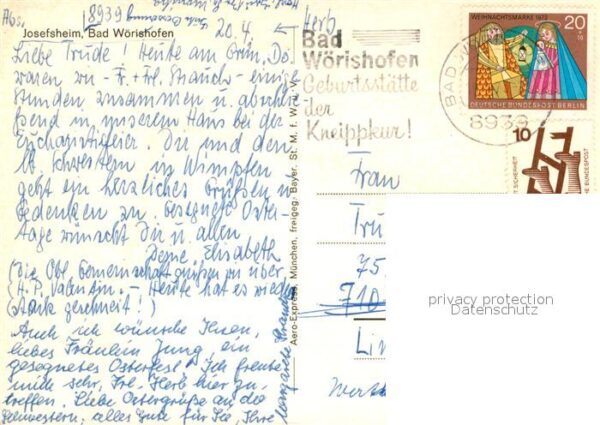 Abs.
8939
20.4.
Josefsheim, Bad Wörishofen
Liebe Trude! Heute am Grün. Do
waren wir - Fr. + Frl. Strauch - einige
Stunden zusammen u. abschließend in unserem Haus bei der
Eucharistiefeier. Dir und den
Schwestern in Wimpfen
geht ein herzliches Grüßen u.
Gedenken zu. Gesegnete Oster-
tage wünscht Dir u. allen
Deine Elisabeth
(Die Obl. Gemeinschaft grüßen wir über
H. P. Valentin. - Heute hat es wieder
stark geschneit!)
Auch ich wünsche Ihnen,
liebes Fräulein Jung, ein
gesegnetes Osterfest! Ich freute
mich sehr, Frl. Herb hier zu
treffen. Liebe Ostergrüße an die
Schwestern, alles Gute für Sie, Ihre
Aero-Express, München, freigeg. Bayer. St. M. f. Wirt. V.
Herb
Bad
Wörishofen
Geburtsstätte
der
Kneippkur!
BAD
8939
WEIHNACHTSMARKE 1972
20
+10
DEUTSCHE BUNDESPOST BERLIN
10
Frau
Tru
75
710
Lin
privacy protection
Datenschutz